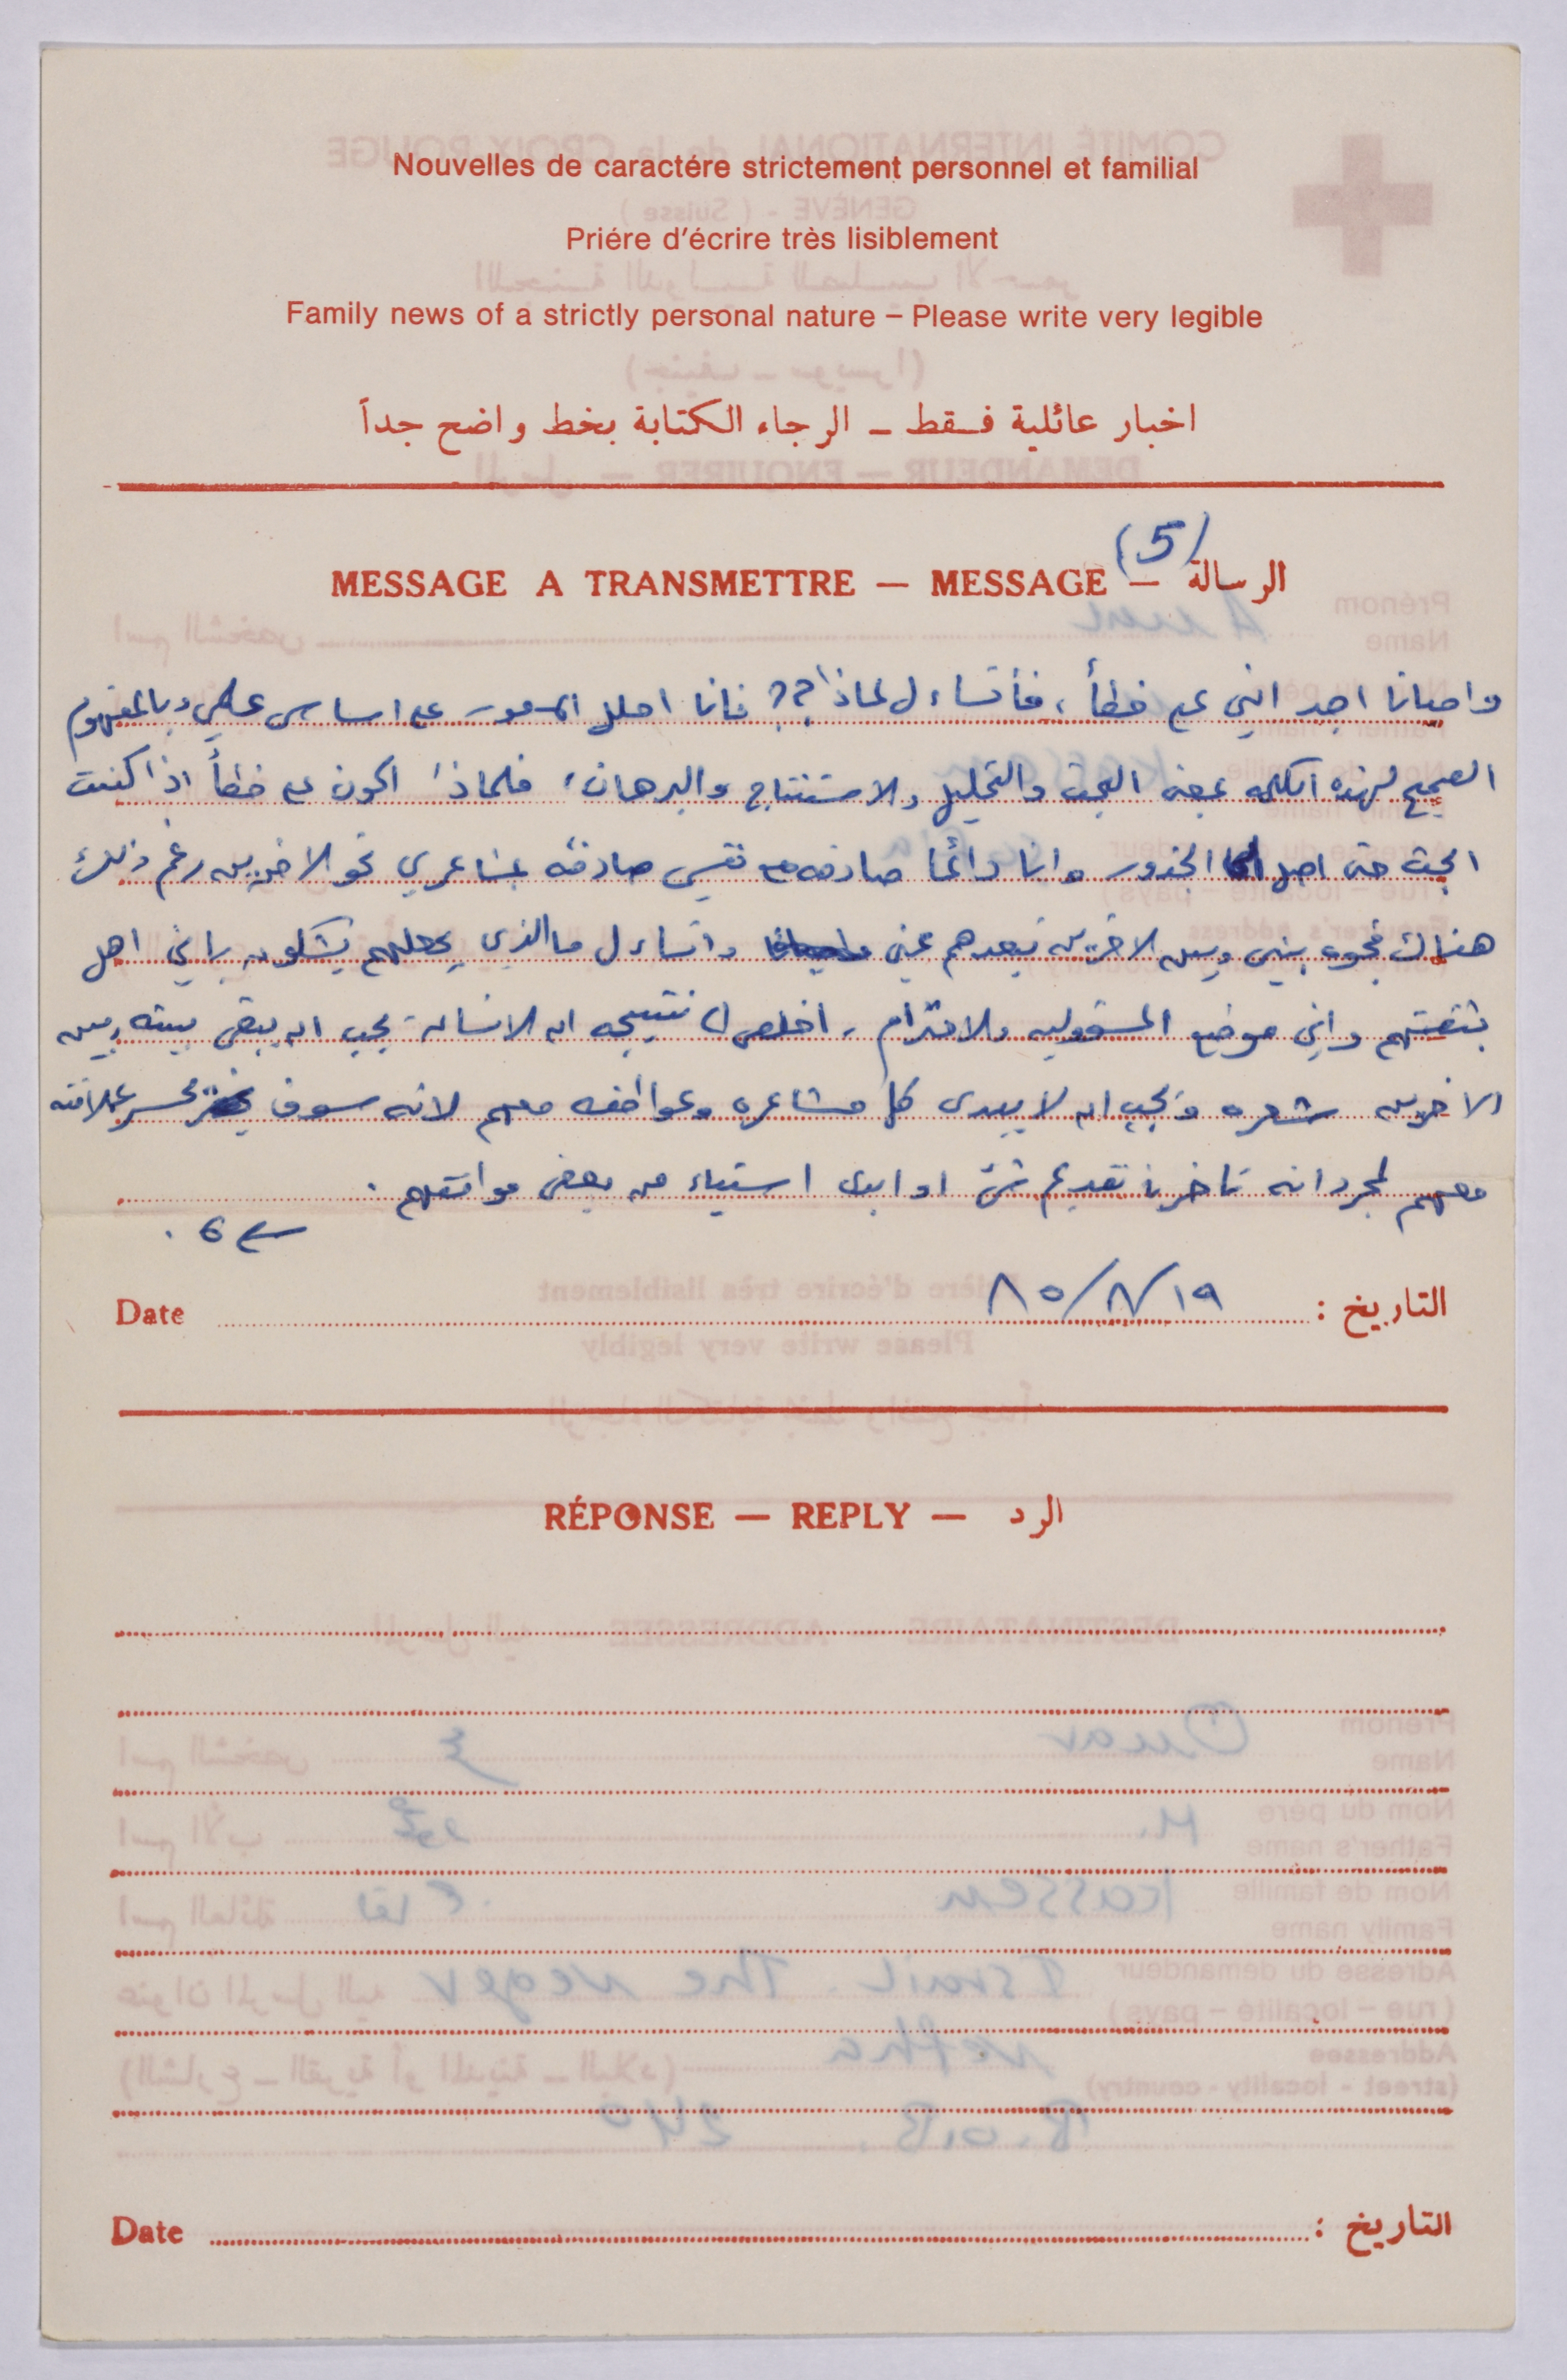 Nouvelles de caractére strictement personnel et familial
Priére d'écrire très lisiblement
Family news of a strictly personal nature – Please write very legible
اخبار عائلية فـقط ـ الرجاء الكتابة بخط واضح جداً
(5)
MESSAGE A TRANSMETTRE — MESSAGE — الرسالة
واحيانا اجد انني على خطأ، فأتساءل لماذا؟؟ فانا احلل الامور على اساس علمي وبالمفهوم
الصحيح لهذه الكلمه بمعنى البحث والتحليل والاستنتاج والبرهان، فلماذا اكون على خطأ اذا كنت
ابحث حتى اصل الجذور وانا دائما صادقه مع نفسي صادقه بمشاعري نحو الاخرين رغم ذلك
هناك فجوه بيني وبين الاخرين تبعدهم عني واتساءل ما الذي يجعلهم يشكون باني اهل
بثقتهم واني موضع المسؤوليه والاحترام، اخلص ل نتيجه ان الانسان يجب ان يبقى بينه وبين
الاخرين شعره ويجب ان لا يبدي كل مشاعره وعواطفه معهم لانه سوف يخسر علاقته
معهم لمجرد انه تاخر بتقديم شئ او ابدى استياء من بعض مواقفهم .
6 .
Date ١٩/٨/٨٥ التاريخ :
RÉPONSE — REPLY — الرد
Date التاريخ :